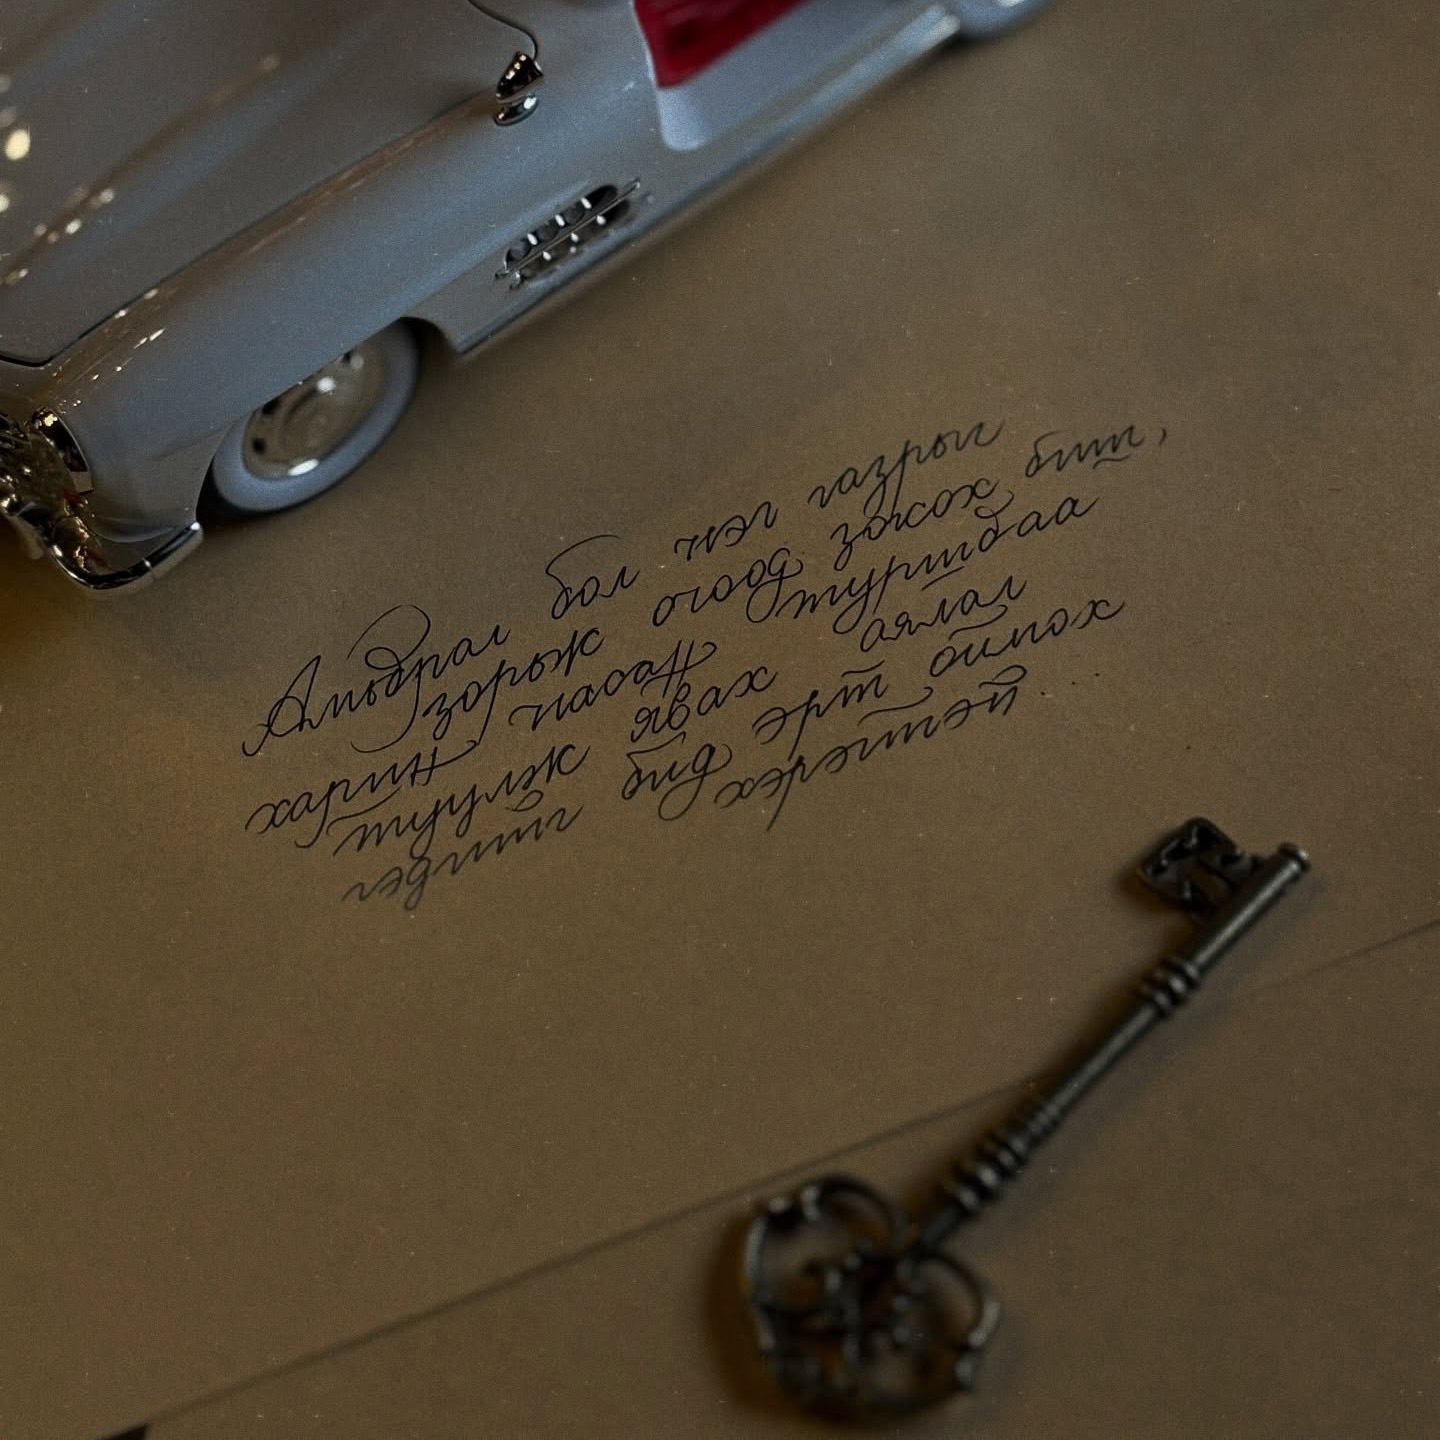 Амьдрал бол нэг газрыг
зорьж очоод зогсох биш,
харин насан туршдаа
туулж явах аялал
гэдгийг бид эрт ойлгох
хэрэгтэй...